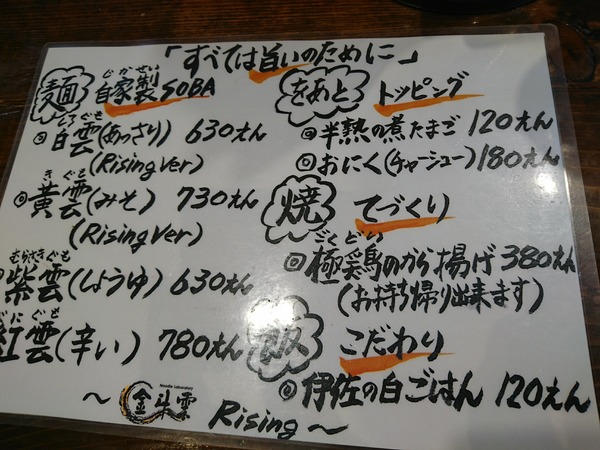 「すべては旨いのために」
麺 自家製SOBA
じかせい
しろぐも
白雲(あっさり) 630えん
(Rising Ver)
きぐも
黄雲(みそ) 730えん
(Rising Ver)
むらさきぐも
紫雲(しょうゆ) 630えん
べにぐも
紅雲(辛い) 780えん
をあと トッピング
半熟の煮たまご 120えん
おにく(チャーシュー) 180えん
焼 てづくり
ごくどり
極鶏のから揚げ 380えん
(お持ち帰り出来ます)
こだわり
伊佐の白ごはん 120えん
~ Noodle Laboratory 金斗雲 Rising ~